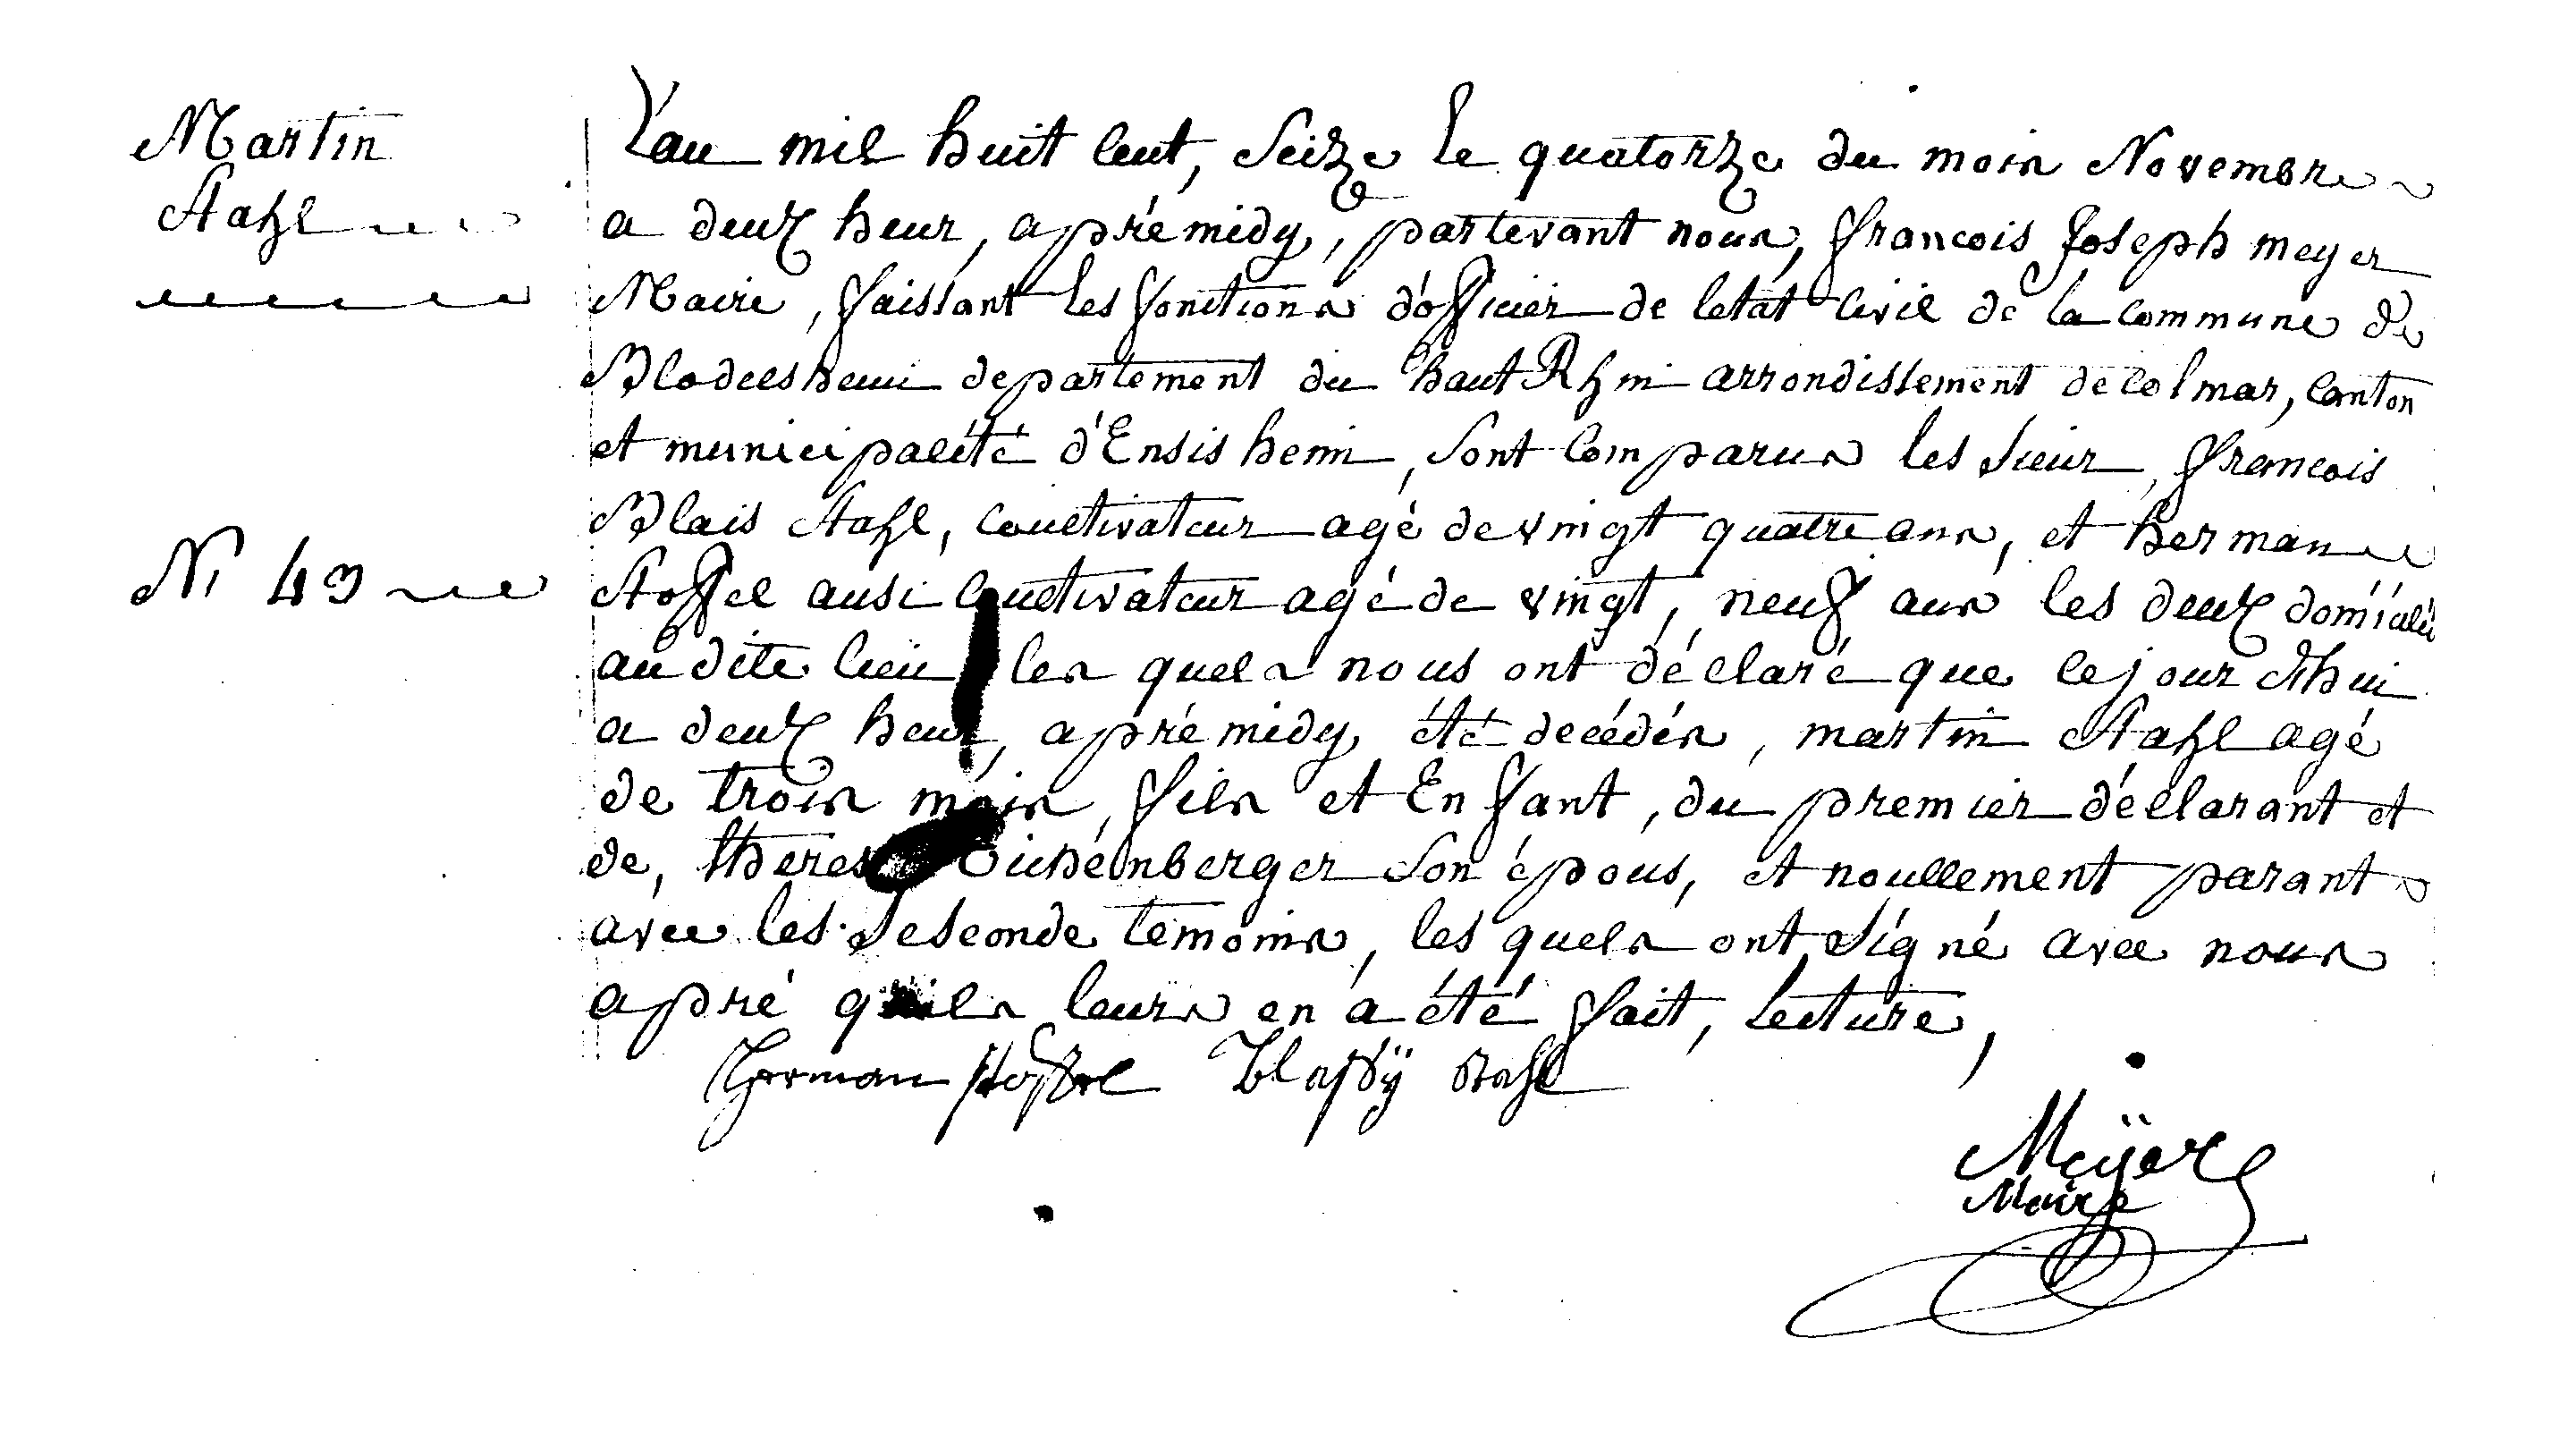 Martin
Stahl
N 43
L'an mil huit Cent, Seize le quatorze du mois Novembre
a deux heur, apré midy, partevant nous, francois Joseph meyer
Maire, faissant les fonctions d'officier de letat Civil de la Commune de
Blodelsheim departement du haut Rhin arrondissement de Colmar, Canton
et municipalité d'Ensisheim, Sont Comparus les Sieur, francois
Blais Stahl, Coultivateur agé de vingt quatre ans, et herman
Stoffel ausi Coultivateur agé de vingt, neuf ans les deux domicilié
au dite lieu les quels nous ont déclaré que le jour d'hui
a deux heur, apré midy été decédés, martin Stahl agé
de trois mois, fils et Enfant, du premier déclarant et
de, therese Eichenberger Son épous, et noullement parant
avec les Sesconde temoins, les quels ont Signé avec nous
apré quils leurs en a été fait, lecture,
Herman Stoffel Blassÿ Stahl
Meÿer
Maire